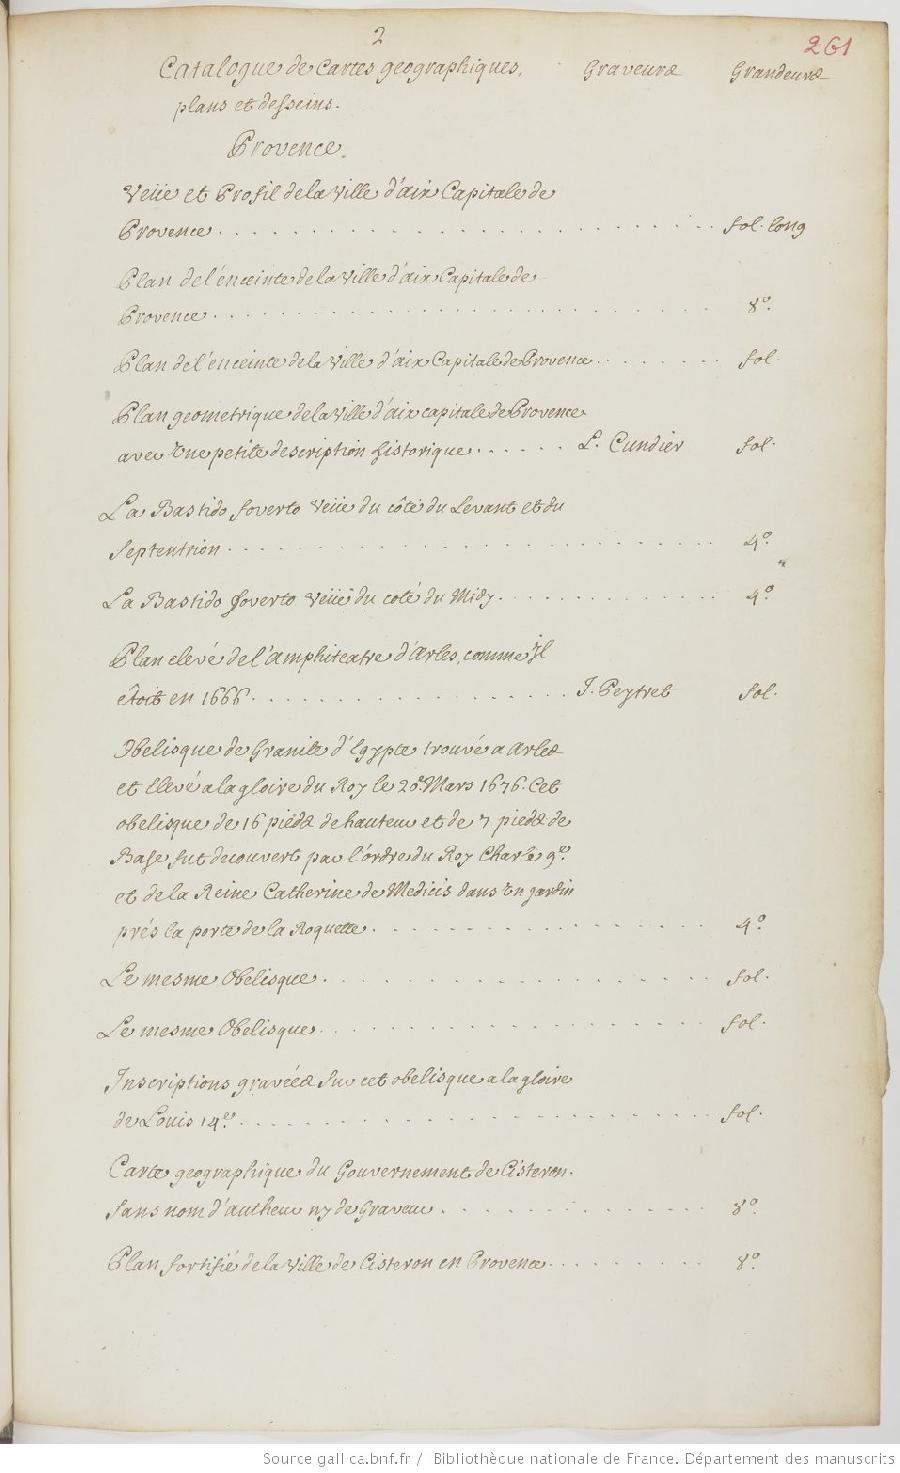 2
261
Catalogue de Cartes geographiques, Graveurs Grandeurs
plans et desseins.
Provence.
Veüe et Profil de la Ville d'aix Capitale de
Provence . . . . . . . . . . fol. long
Plan de l'enceinte de la Ville d'aix Capitale de
Provence . . . . . . . . . . 8º.
Plan de l'enceinte de la Ville d'aix Capitale de Provence . . . . . . fol.
Plan geometrique de la Ville d'aix capitale de Provence
avec une petite description historique . . . . . . L. Cundier fol.
La Bastido foverto Veüe du côté du Levant et du
Septentrion . . . . . . . . . . 4º.
La Bastido foverto Veüe du coté du Midy . . . . . . . . . . 4º.
Plan elevé de l'amphiteatre d'Arles, comme jl
étoit en 1666 . . . . . . . . . . J. Peytret fol.
Obelisque de Granite d'Egypte trouvé a Arles
et Elevé a la gloire du Roy le 20e. Mars 1676. Cet
obelisque de 16 pieds de hauteur et de 7 pieds de
Base fut decouvert par l'ordre du Roy Charle 9e.
et de la Reine Catherine de Medicis dans un jardin
prés la porte de la Roquette . . . . . . . . . . 4º.
Le mesme Obelisque . . . . . . . . . . fol.
Le mesme Obelisque . . . . . . . . . . fol.
Inscriptions gravées sur cet obelisque a la gloire
de Louis 14e. . . . . . . . . . . fol.
Carte geographique du Gouvernement de Cisteron.
sans nom d'autheur ny de Graveur . . . . . . . . . . 8º.
Plan fortifié de la Ville de Cisteron en Provence . . . . . . 8º.
Source gallica.bnf.fr / Bibliothèque nationale de France. Département des manuscrits